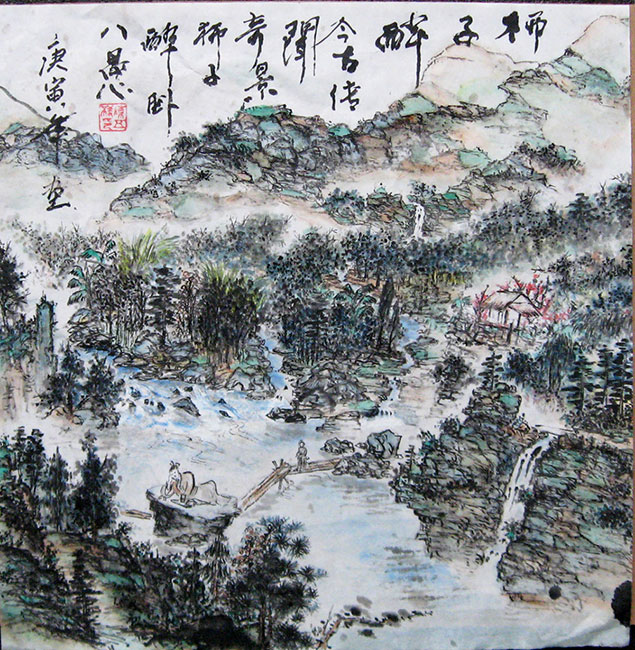 子
醉
今古传
闻
奇景
狮子
醉卧
八景心
庚寅年画